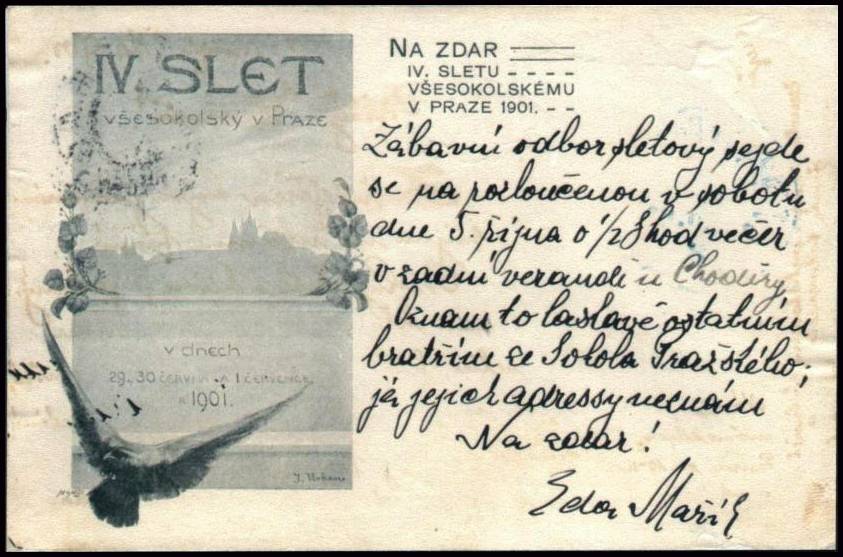 IV. SLET
všesokolský v Praze
v dnech
29. 30 ČERVNA A 1 ČERVENCE
1901.
NA ZDAR
IV. SLETU
VŠESOKOLSKÉMU
V PRAZE 1901.
Zábavní odbor sletový sejde
se na rozloučenou v sobotu
dne 5. října o 1/2 8 hod večer
v zadní verandě u Choděry
Oznam to laskavě ostatním
bratřím ze Sokola Pražského;
já jejich adressy neznám
Na zdar!
Eda Mařík